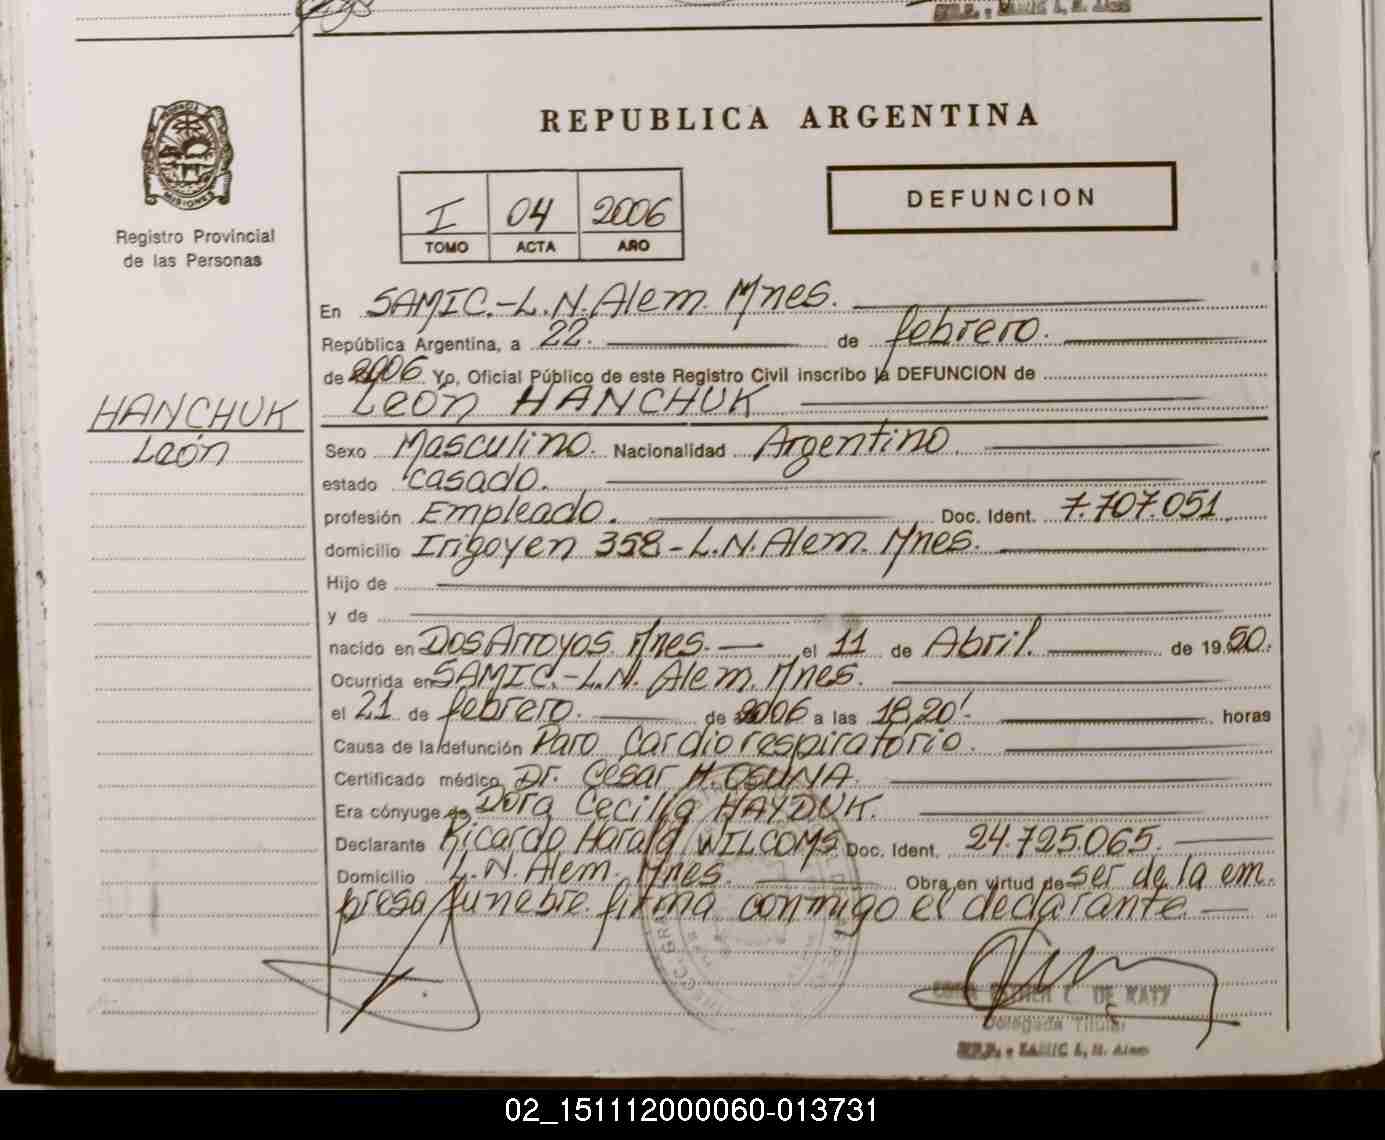 REPUBLICA ARGENTINA
MISIONES
Registro Provincial
de las Personas
I 04 2006
TOMO ACTA AÑO
DEFUNCION
En SAMIC.-L.N.Alem. Mnes.
República Argentina, a 22. de febrero.
de 2006 Yo, Oficial Público de este Registro Civil inscribo la DEFUNCION de
León HANCHUK
HANCHUK
León
Sexo Masculino. Nacionalidad Argentino.
estado casado.
profesión Empleado. Doc. Ident. 7.707.051
domicilio Irigoyen 358-L.N.Alem. Mnes.
Hijo de
y de
nacido en Dos Arroyos Mnes.- el 11 de Abril. de 1950.
Ocurrida en SAMIC.-L.N. Alem. Mnes.
el 21 de febrero. de 2006 a las 18,20'. horas
Causa de la defunción Paro Cardiorespiratorio.
Certificado médico Dr. Cesar H. OSUNA.
Era cónyuge de Dora Cecilia HAYDUK.
Declarante Ricardo Harald WILCOMS Doc. Ident. 24.725.065.
Domicilio L.N. Alem. Mnes. Obra en virtud de ser de la em.
presa funebre. firma conmigo el declarante
ESTHER C. DE KATZ
Delegada Titular
SAMIC L. N. Alem
02_151112000060-013731